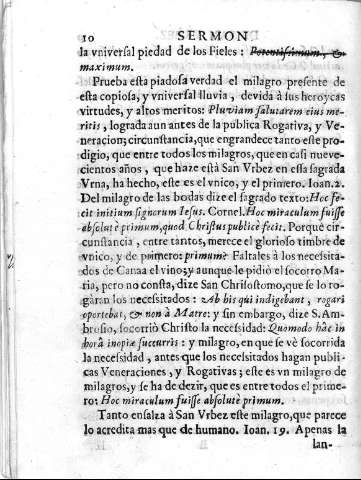 10 SERMON
la vniversal piedad de los Fieles : Potentissimum, &
maximum.
Prueba esta piadosa verdad el milagro presente de
esta copiosa, y vniversal lluvia , devida à sus heroycas
virtudes, y altos meritos: Pluviam salutarem eius me-
ritis , lograda aun antes de la publica Rogativa, y Ve-
neracion; circunstancia, que engrandece tanto este pro-
digio, que entre todos los milagros, que en casi nueve-
cientos años , que haze està San Vrbez en essa sagrada
Vrna, ha hecho, este es el vnico, y el primero. Ioan.2.
Del milagro de las bodas dize el sagrado texto: Hoc fe-
cit initium signorum Iesus. Cornel. Hoc miraculum fuisse
absolutè primum, quod Christus publicè fecit. Porquè cir-
cunstancia , entre tantos, merece el glorioso timbre de
vnico, y de primero: primum? Faltales à los necesita-
dos de Canaa el vino; y aunque le pidió el socorro Ma-
ria, pero no consta, dize San Chrisostomo, que se lo ro-
gàran los necessitados : Ab his qui indigebant , rogari
oportebat, & non à Matre: y sin embargo, dize S. Am-
brosio, socorriò Christo la necessidad: Quomodo hac in
horâ inopiæ succurris : y milagro, en que se vè socorrida
la necessidad , antes que los necessitados hagan publi-
cas Veneraciones , y Rogativas ; este es vn milagro de
milagros, y se ha de dezir, que es entre todos el prime-
ro: Hoc miraculum fuisse absolutè primum.
Tanto ensalza à San Vrbez este milagro, que parece
lo acredita mas que de humano. Ioan. 19. Apenas la
lan-